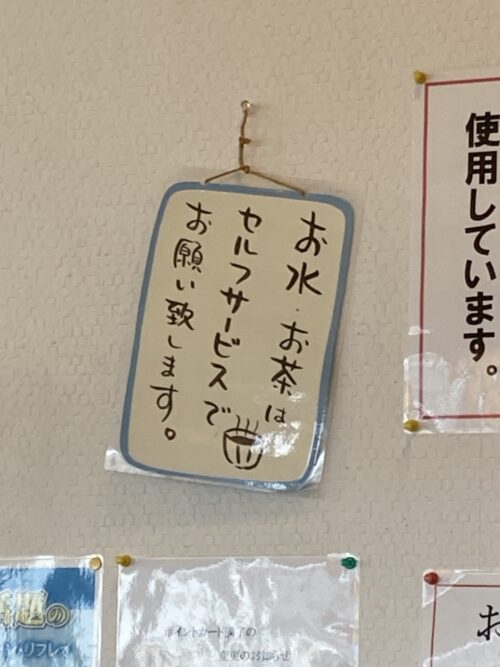 お水・お茶は
セルフサービスで
お願い致します。
使用しています。
題の
リフレ
ポイントカード
変更のお知らせ
お